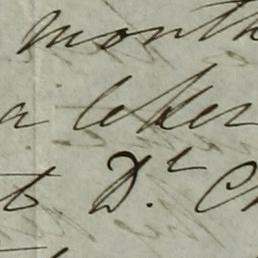 month
a letter
to Dr. Ch